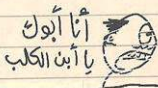 أنا أبوك
يا أبن الكلب